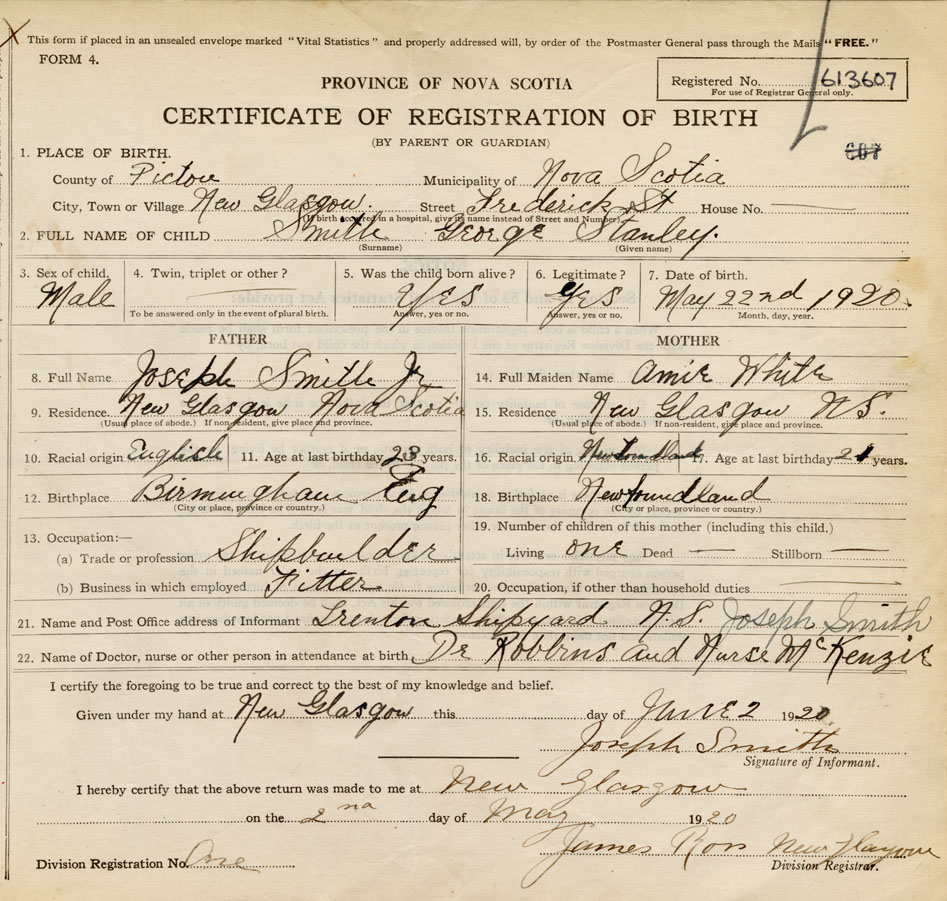 This form if placed in an unsealed envelope marked "Vital Statistics" and properly addressed will, by order of the Postmaster General pass through the Mails "FREE."
FORM 4.
PROVINCE OF NOVA SCOTIA
Registered No. 613607
For use of Registrar General only.
CERTIFICATE OF REGISTRATION OF BIRTH
(BY PARENT OR GUARDIAN)
607
1. PLACE OF BIRTH.
County of Pictou Municipality of Nova Scotia
City, Town or Village New Glasgow. Street Frederick St House No.
(If birth occurred in a hospital, give its name instead of Street and Number)
2. FULL NAME OF CHILD Smith George Stanley.
(Surname) (Given name)
3. Sex of child. 4. Twin, triplet or other? 5. Was the child born alive? 6. Legitimate? 7. Date of birth.
Male YES YES May 22nd 1920.
To be answered only in the event of plural birth. Answer, yes or no. Answer, yes or no. Month, day, year.
FATHER MOTHER
8. Full Name Joseph Smith Jr 14. Full Maiden Name Amie White
9. Residence. New Glasgow Nova Scotia 15. Residence New Glasgow N.S.
(Usual place of abode.) If non-resident, give place and province. (Usual place of abode.) If non-resident, give place and province.
10. Racial origin English 11. Age at last birthday 23 years. 16. Racial origin Newfoundland 17. Age at last birthday 21 years.
12. Birthplace Birmingham Eng 18. Birthplace Newfoundland
(City or place, province or country.) (City or place, province or country.)
13. Occupation:— 19. Number of children of this mother (including this child.)
(a) Trade or profession Shipbuilder Living one Dead — Stillborn —
(b) Business in which employed Fitter 20. Occupation, if other than household duties
21. Name and Post Office address of Informant Trenton Shipyard N.S. Joseph Smith
22. Name of Doctor, nurse or other person in attendance at birth. Dr Robbins and Nurse McKenzie
I certify the foregoing to be true and correct to the best of my knowledge and belief.
Given under my hand at New Glasgow this day of JUNE 2 1920.
Joseph Smith
Signature of Informant.
I hereby certify that the above return was made to me at New Glasgow
on the 2nd day of May 1920
James Ross New Glasgow
Division Registration No. One Division Registrar.